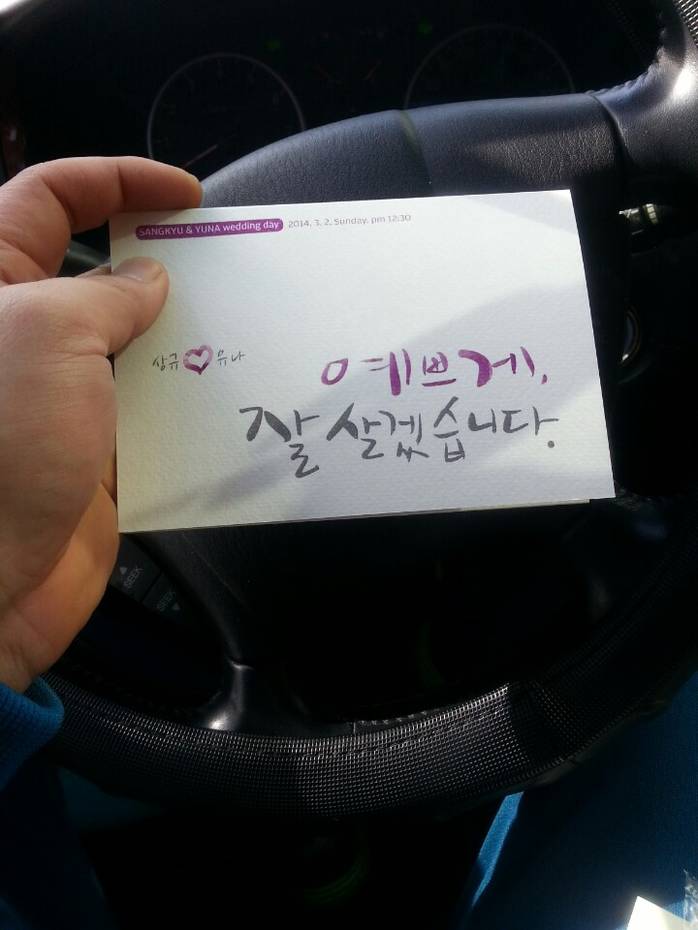 SANGKYU & YUNA wedding day 2014. 3. 2. Sunday. pm 12:30
상규 유나
예쁘게,
잘 살겠습니다.
SEEK
SEEK